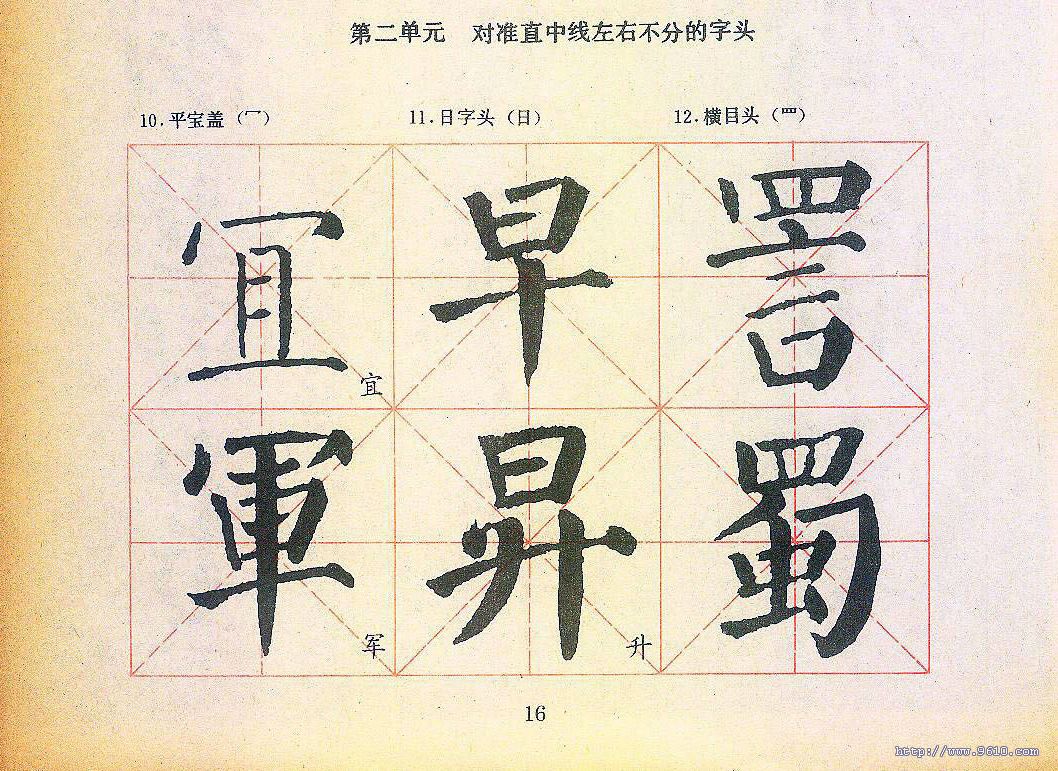 第二单元 对准直中线左右不分的字头
10.平宝盖（冖） 11.日字头（日） 12.横目头（罒）
冝 早 詈
宜
軍 昇 蜀
军 升
16
http://www.9610.com